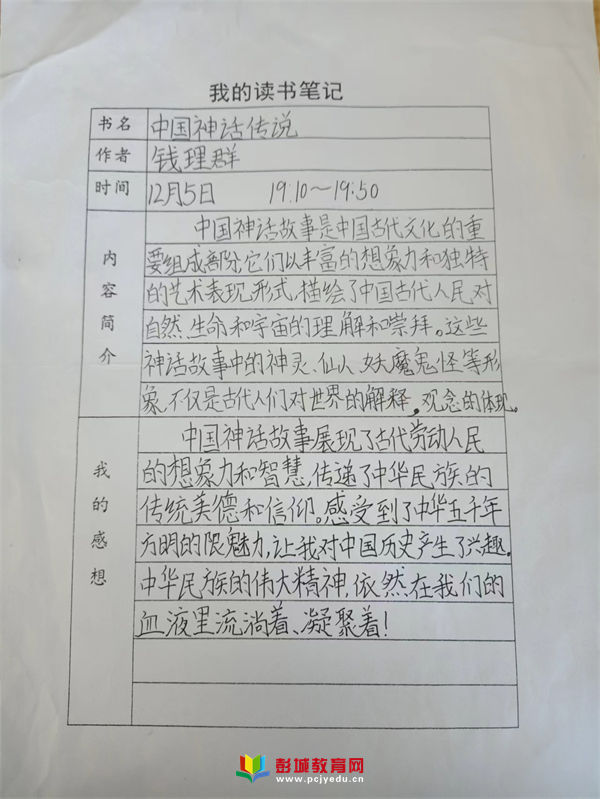 我的读书笔记
书名 中国神话传说
作者 钱理群
时间 12月5日 19:10～19:50
内容简介
中国神话故事是中国古代文化的重
要组成部分,它们以丰富的想象力和独特
的艺术表现形式,描绘了中国古代人民对
自然、生命和宇宙的理解和崇拜。这些
神话故事中的神灵、仙人、妖魔鬼怪等形
象,不仅是古代人们对世界的解释,观念的体现。
我的感想
中国神话故事展现了古代劳动人民
的想象力和智慧,传递了中华民族的
传统美德和信仰。感受到了中华五千年
方明的限魅力,让我对中国历史产生了兴趣。
中华民族的伟大精神,依然在我们的
血液里流淌着、凝聚着!
彭城教育网
www.pcjyedu.cn